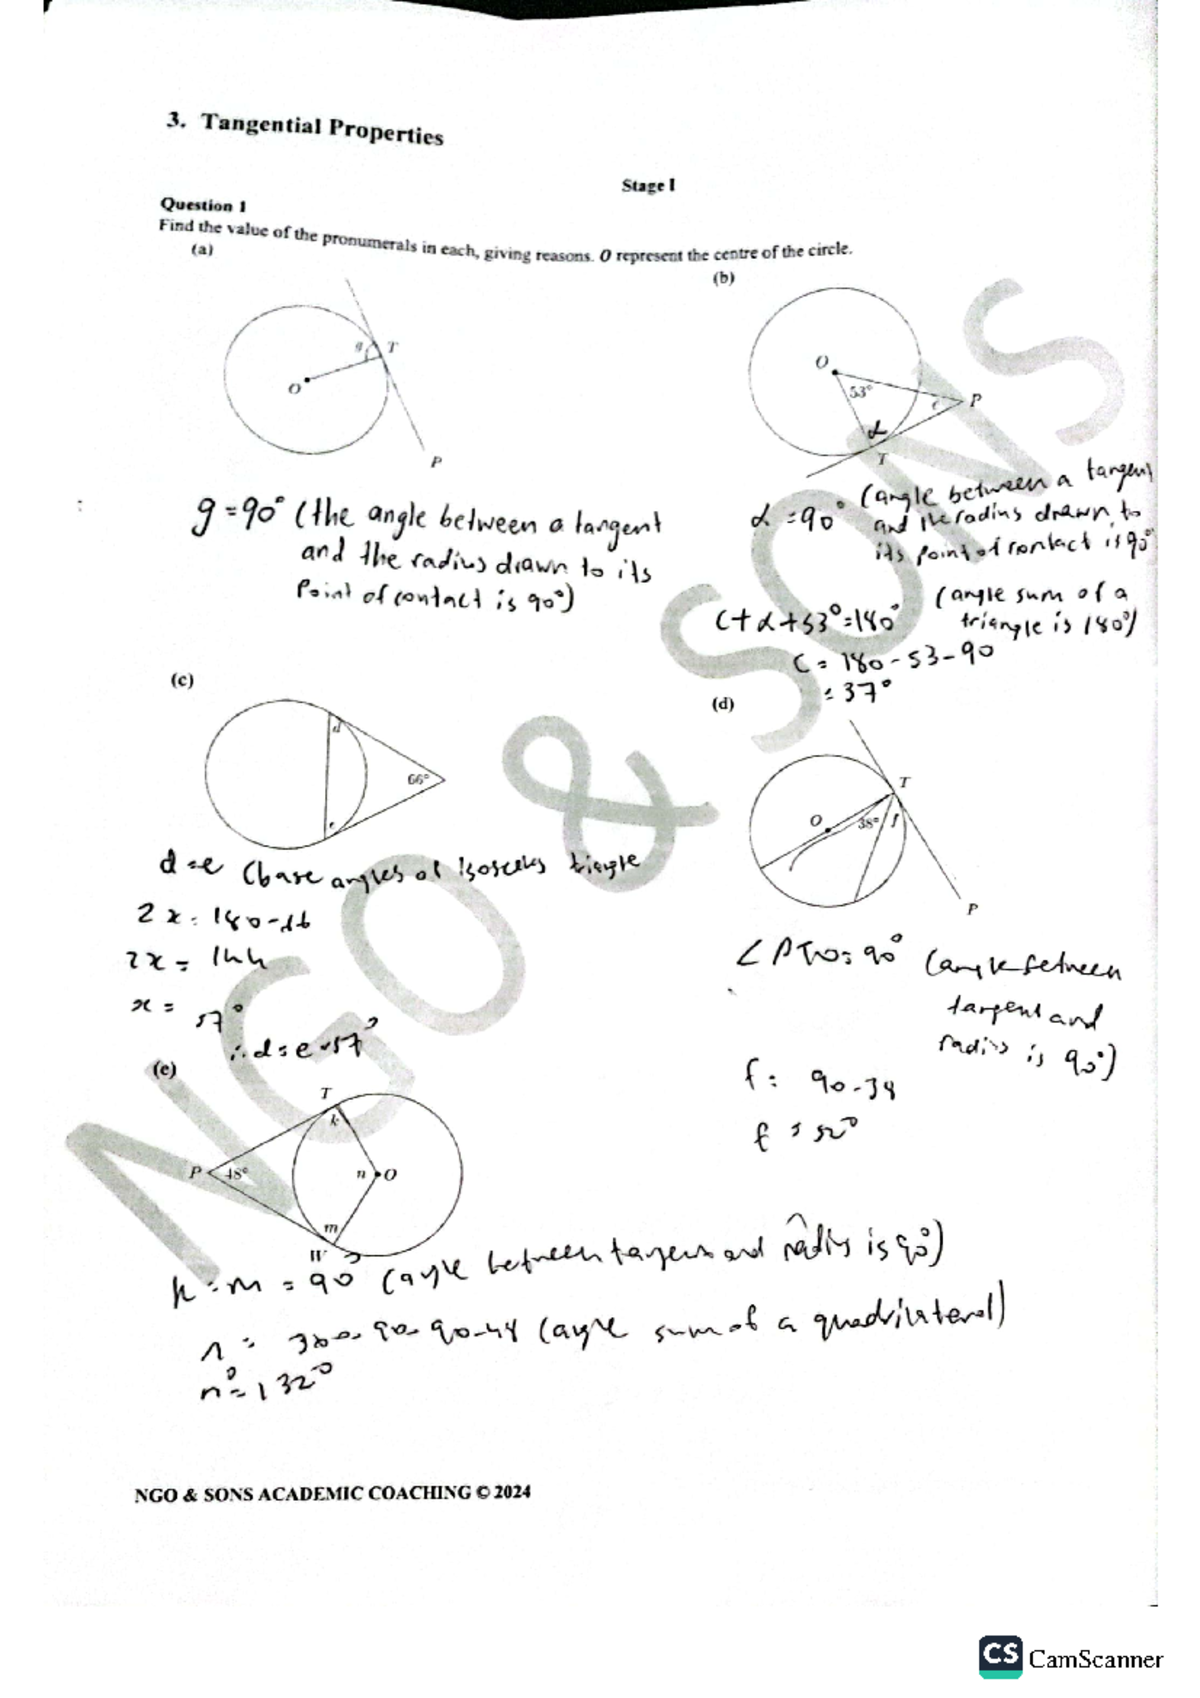 3. Tangential Properties
Stage I
Question 1
Find the value of the pronumerals in each, giving reasons. O represent the centre of the circle.
(a)
(b)
g T
O
P
O
53°
c P
α
T
g = 90° (the angle between a tangent
and the radius drawn to its
Point of contact is 90°)
α = 90° (angle between a tangent
and the radius drawn to
its point of contact is 90°
c + α + 53° = 180° (angle sum of a
triangle is 180°)
c = 180 - 53 - 90
= 37°
(c)
(d)
d
66°
e
T
O
38° f
P
d = e (base angles of isosceles triangle
2x = 180 - 66
2x =
x = 57°
∴ d = e = 57°
∠PTO = 90° (angle between
tangent and
radius is 90°)
f = 90 - 38
f = 52°
(e)
T
k
P 48°
n O
m
W
k = m = 90° (angle between tangent and radius is 90°)
n = 360 - 90 - 90 - 48 (angle sum of a quadrilateral)
n° = 132°
NGO & SONS ACADEMIC COACHING © 2024
NGO & SONS
CS CamScanner